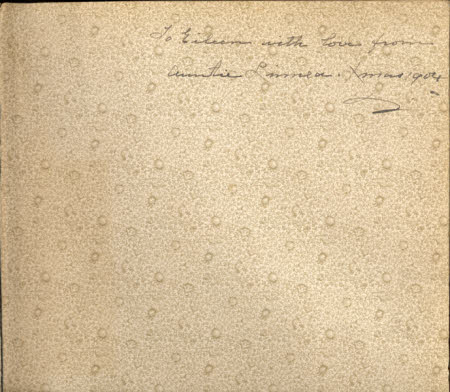 To Eileen with love from
Auntie Linnea. Xmas 1904